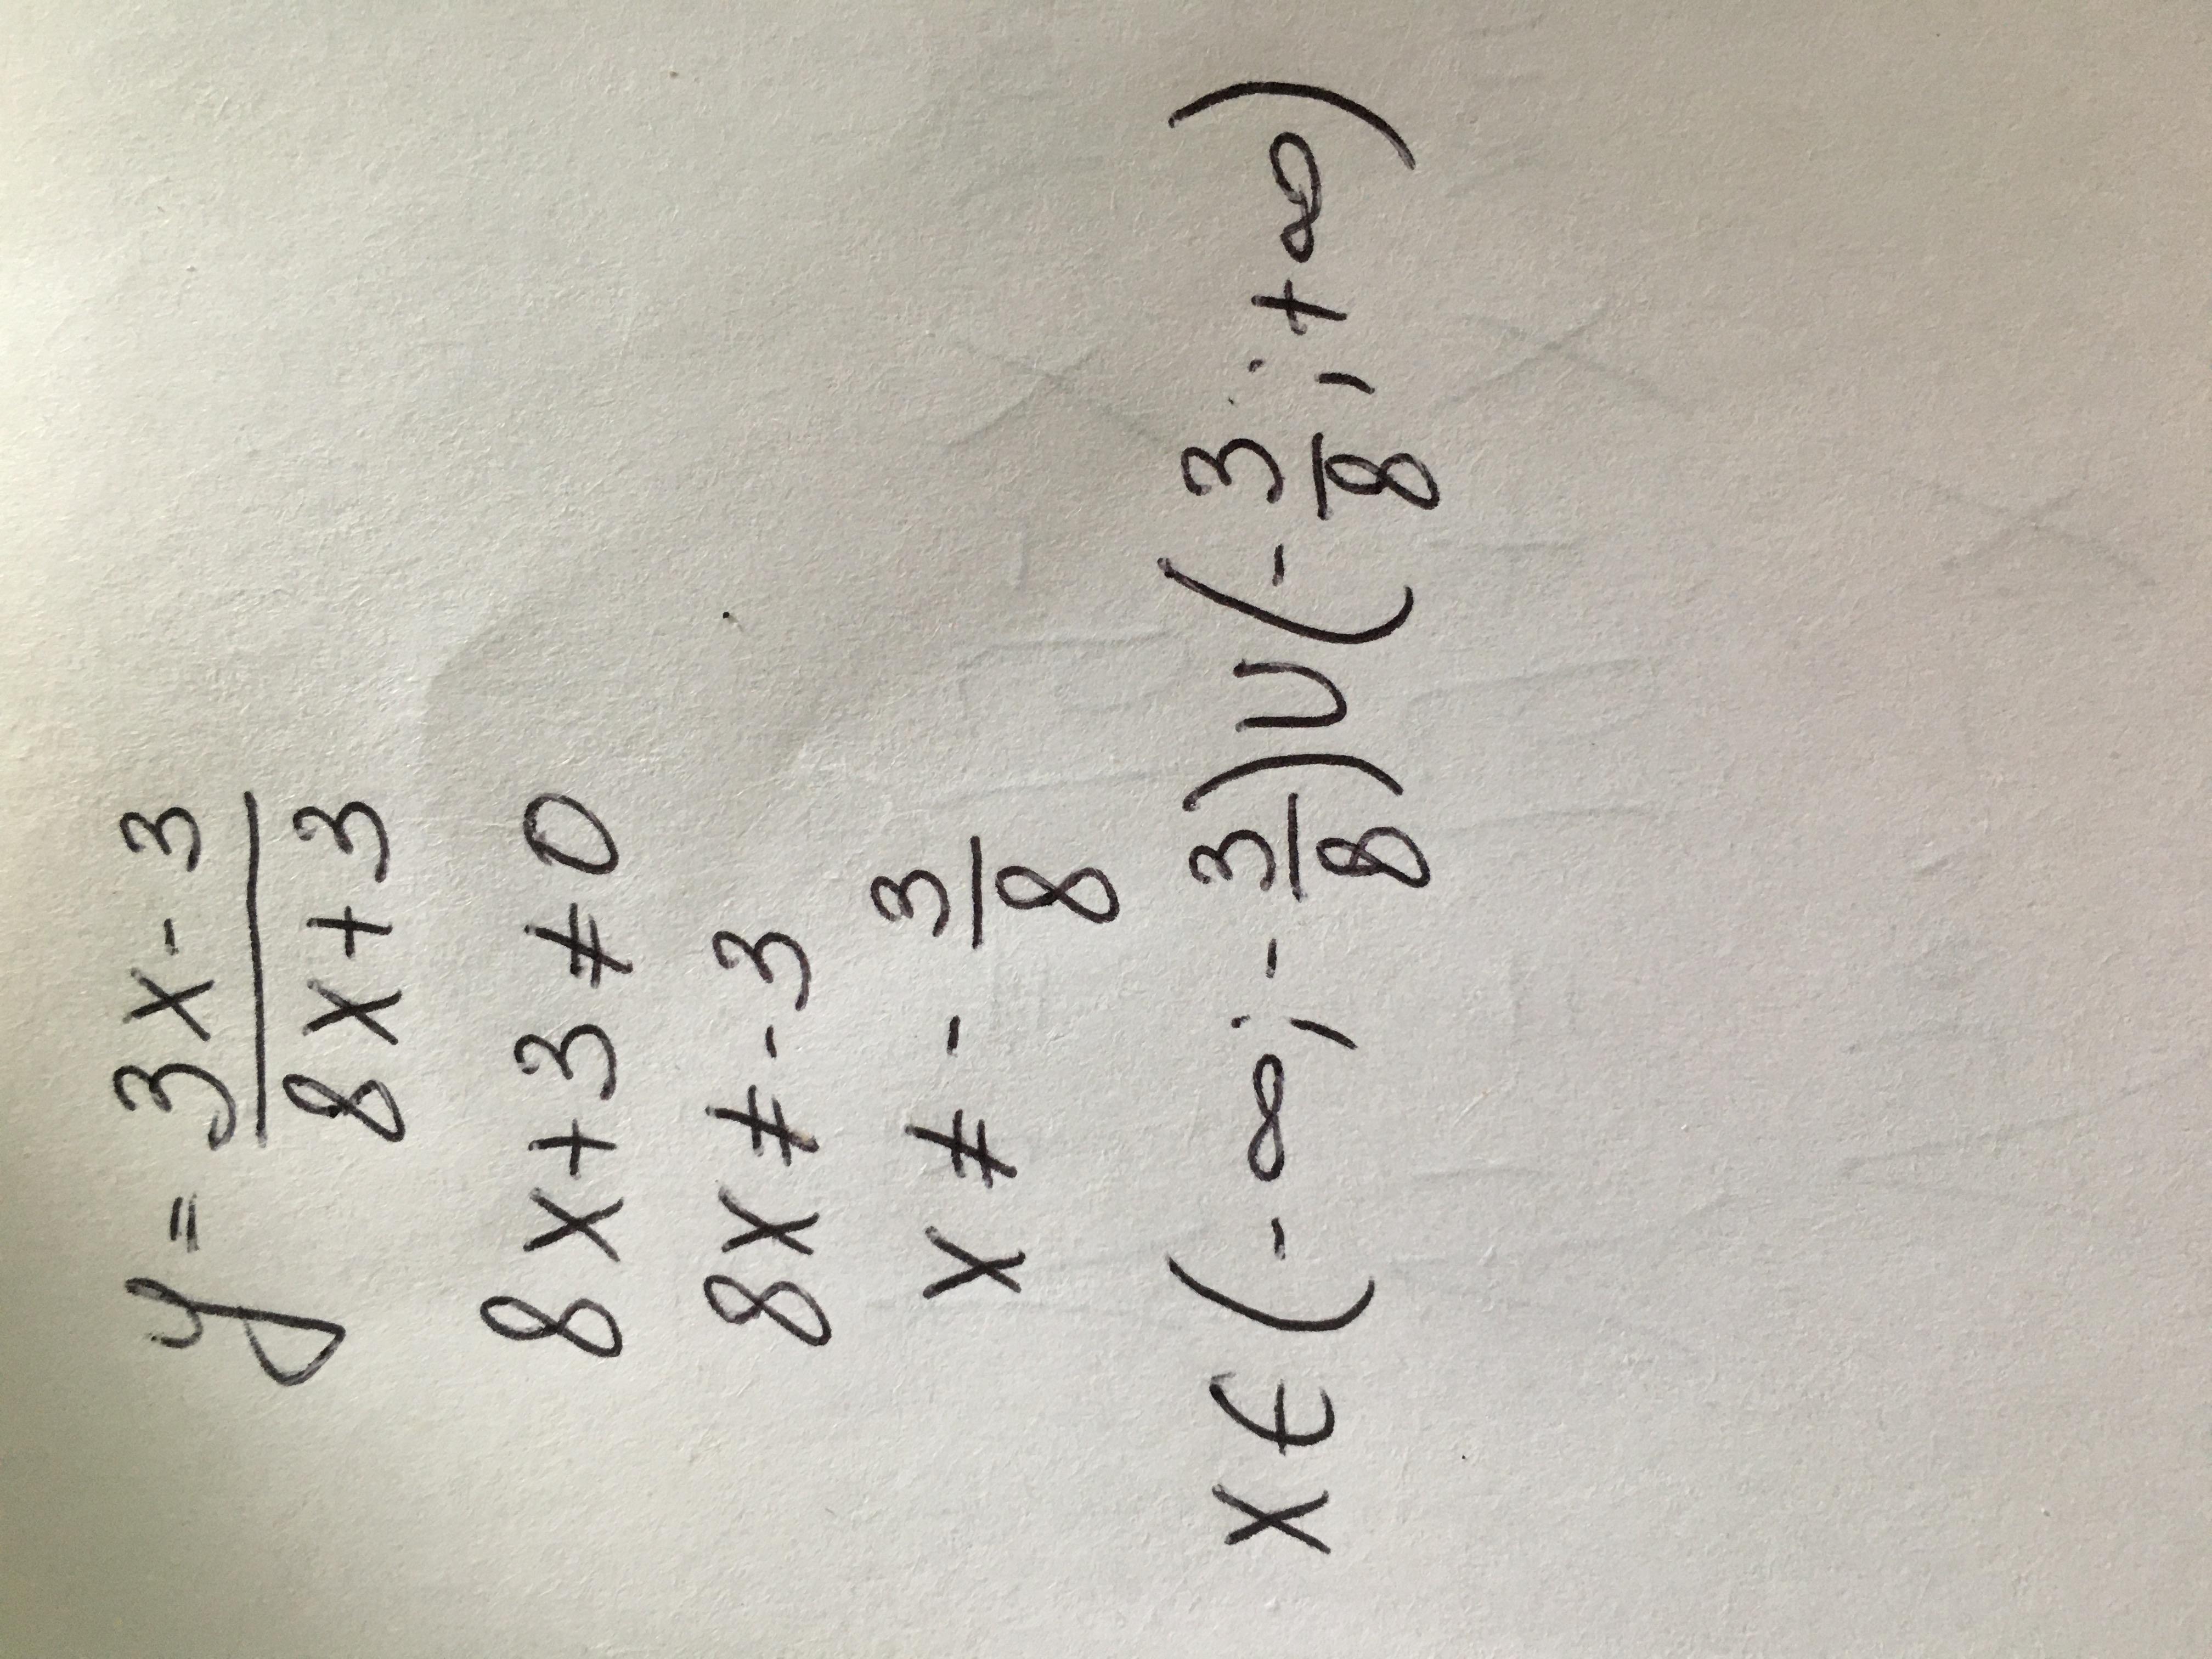 y = \frac{3x-3}{8x+3}
8x+3≠0
8x≠-3
x≠-\frac{3}{8}
x∈(-∞;-\frac{3}{8})∪(-\frac{3}{8};+∞)